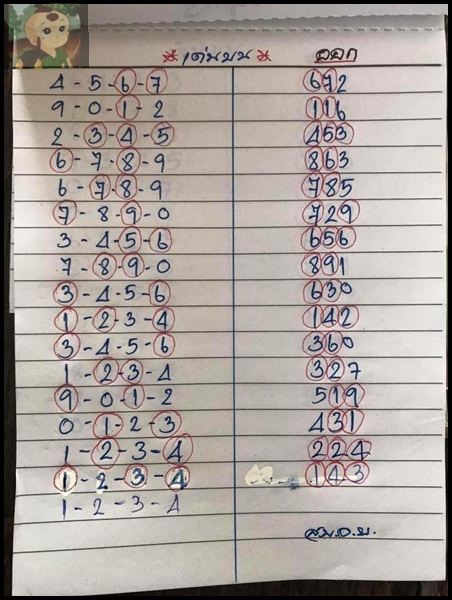 * เด่นบน * ออก
4-5-6-7 672
9-0-1-2 116
2-3-4-5 453
6-7-8-9 863
6-7-8-9 785
7-8-9-0 729
3-4-5-6 656
7-8-9-0 891
3-4-5-6 630
1-2-3-4 142
3-4-5-6 360
1-2-3-4 327
9-0-1-2 519
0-1-2-3 431
1-2-3-4 224
1-2-3-4 143
1-2-3-4